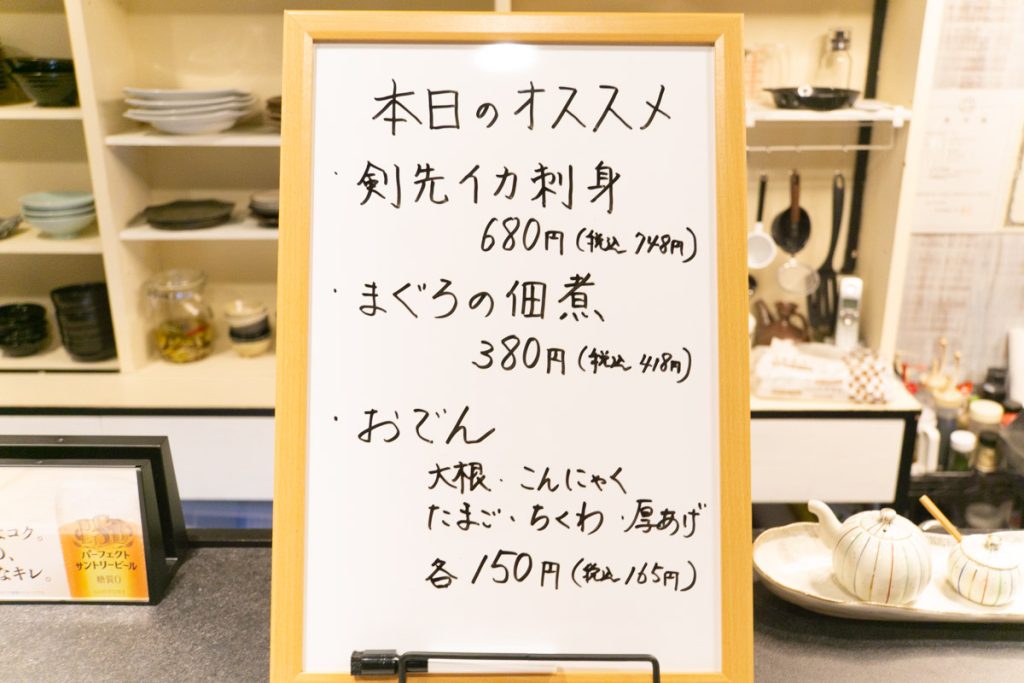 本日のオススメ
・剣先イカ刺身
680円(税込748円)
・まぐろの佃煮
380円(税込418円)
・おでん
大根・こんにゃく
たまご・ちくわ・厚あげ
各150円(税込165円)
コク。
なキレ。
パーフェクト
サントリービール
糖質0